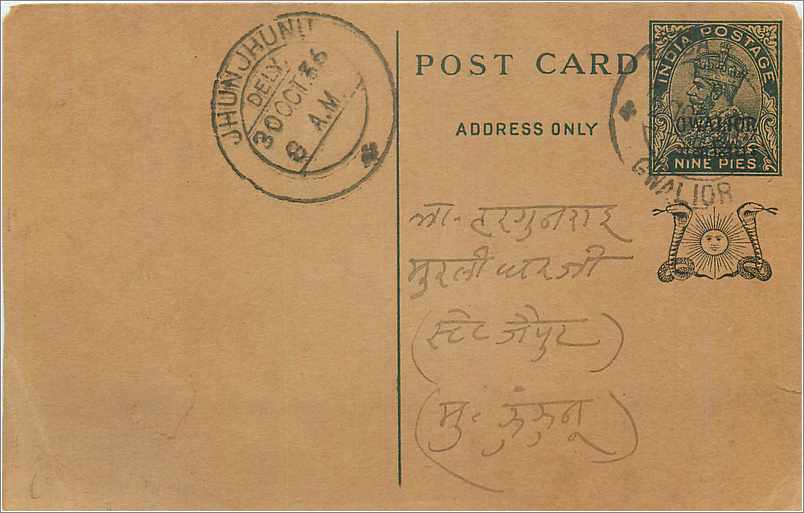 JHUNJHUNU
DELY.
30 OCT. 36
8 A.M.
POST CARD
ADDRESS ONLY
INDIA POSTAGE
GWALIOR
NINE PIES
GWALIOR
हरगुनराइ
मुरलीधरजी
(स्टेट जैपुर)
(मु॰ झुंझुनू)